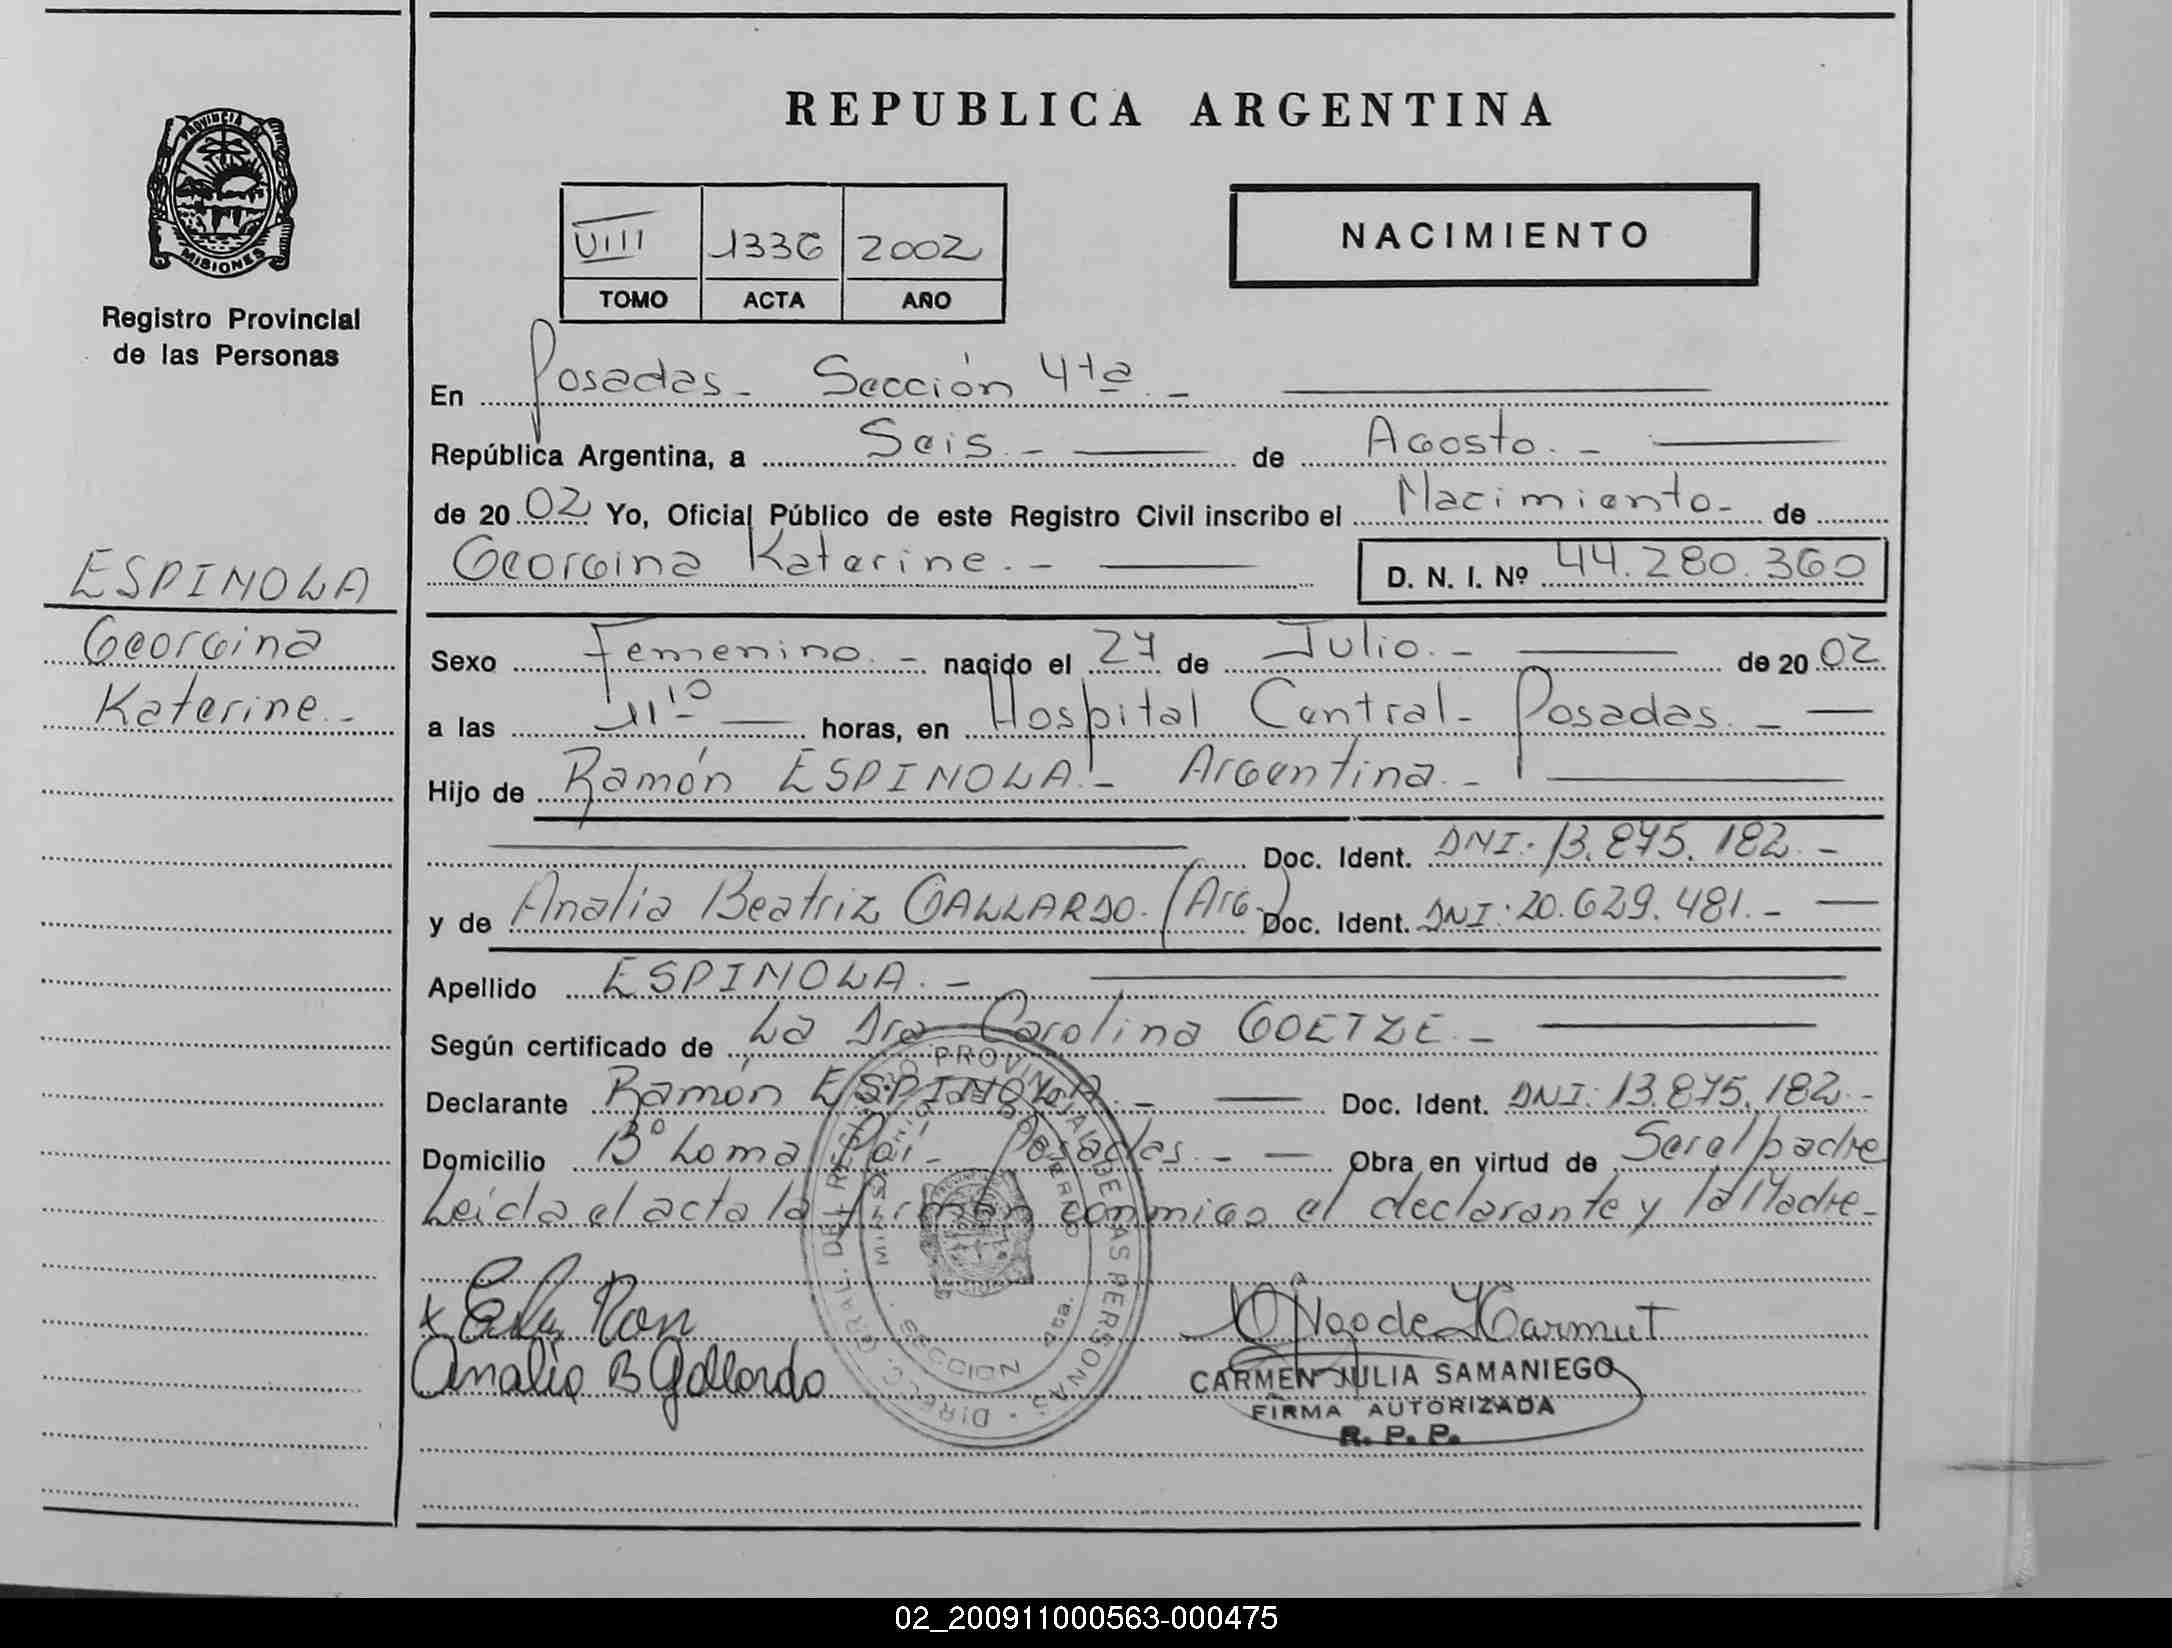 PROVINCIA DE
MISIONES
Registro Provincial
de las Personas
ESPINOLA
Georgina
Katerine.-
REPUBLICA ARGENTINA
VIII 1336 2002
TOMO ACTA AÑO
NACIMIENTO
En Posadas- Sección 4ta.-
República Argentina, a Seis.- de Agosto.-
de 2002 Yo, Oficial Público de este Registro Civil inscribo el Nacimiento- de
Georgina Katerine.- D. N. I. Nº 44.280.360
Sexo Femenino.- nacido el 27 de Julio.- de 2002
a las 11 10 horas, en Hospital Central- Posadas.-
Hijo de Ramón ESPINOLA.- Argentina.-
Doc. Ident. DNI: 13.875.182.-
y de Analia Beatriz GALLARDO. (Arg.) Doc. Ident. DNI: 20.629.481.-
Apellido ESPINOLA.-
Según certificado de La Dra Carolina GOETZE.-
Declarante Ramón ESPINOLA.- Doc. Ident. DNI: 13.875.182.-
Domicilio Bº Loma Poi- Posadas.- Obra en virtud de Ser el padre
Leída el acta la firman conmigo el declarante y la Madre-
Analia B Gallardo
CARMEN JULIA SAMANIEGO
FIRMA AUTORIZADA
R. P. P.
DIREC. GRAL. DEL REGISTRO PROVINCIAL DE LAS PERSONAS
SECCION 4ta.
02_200911000563-000475